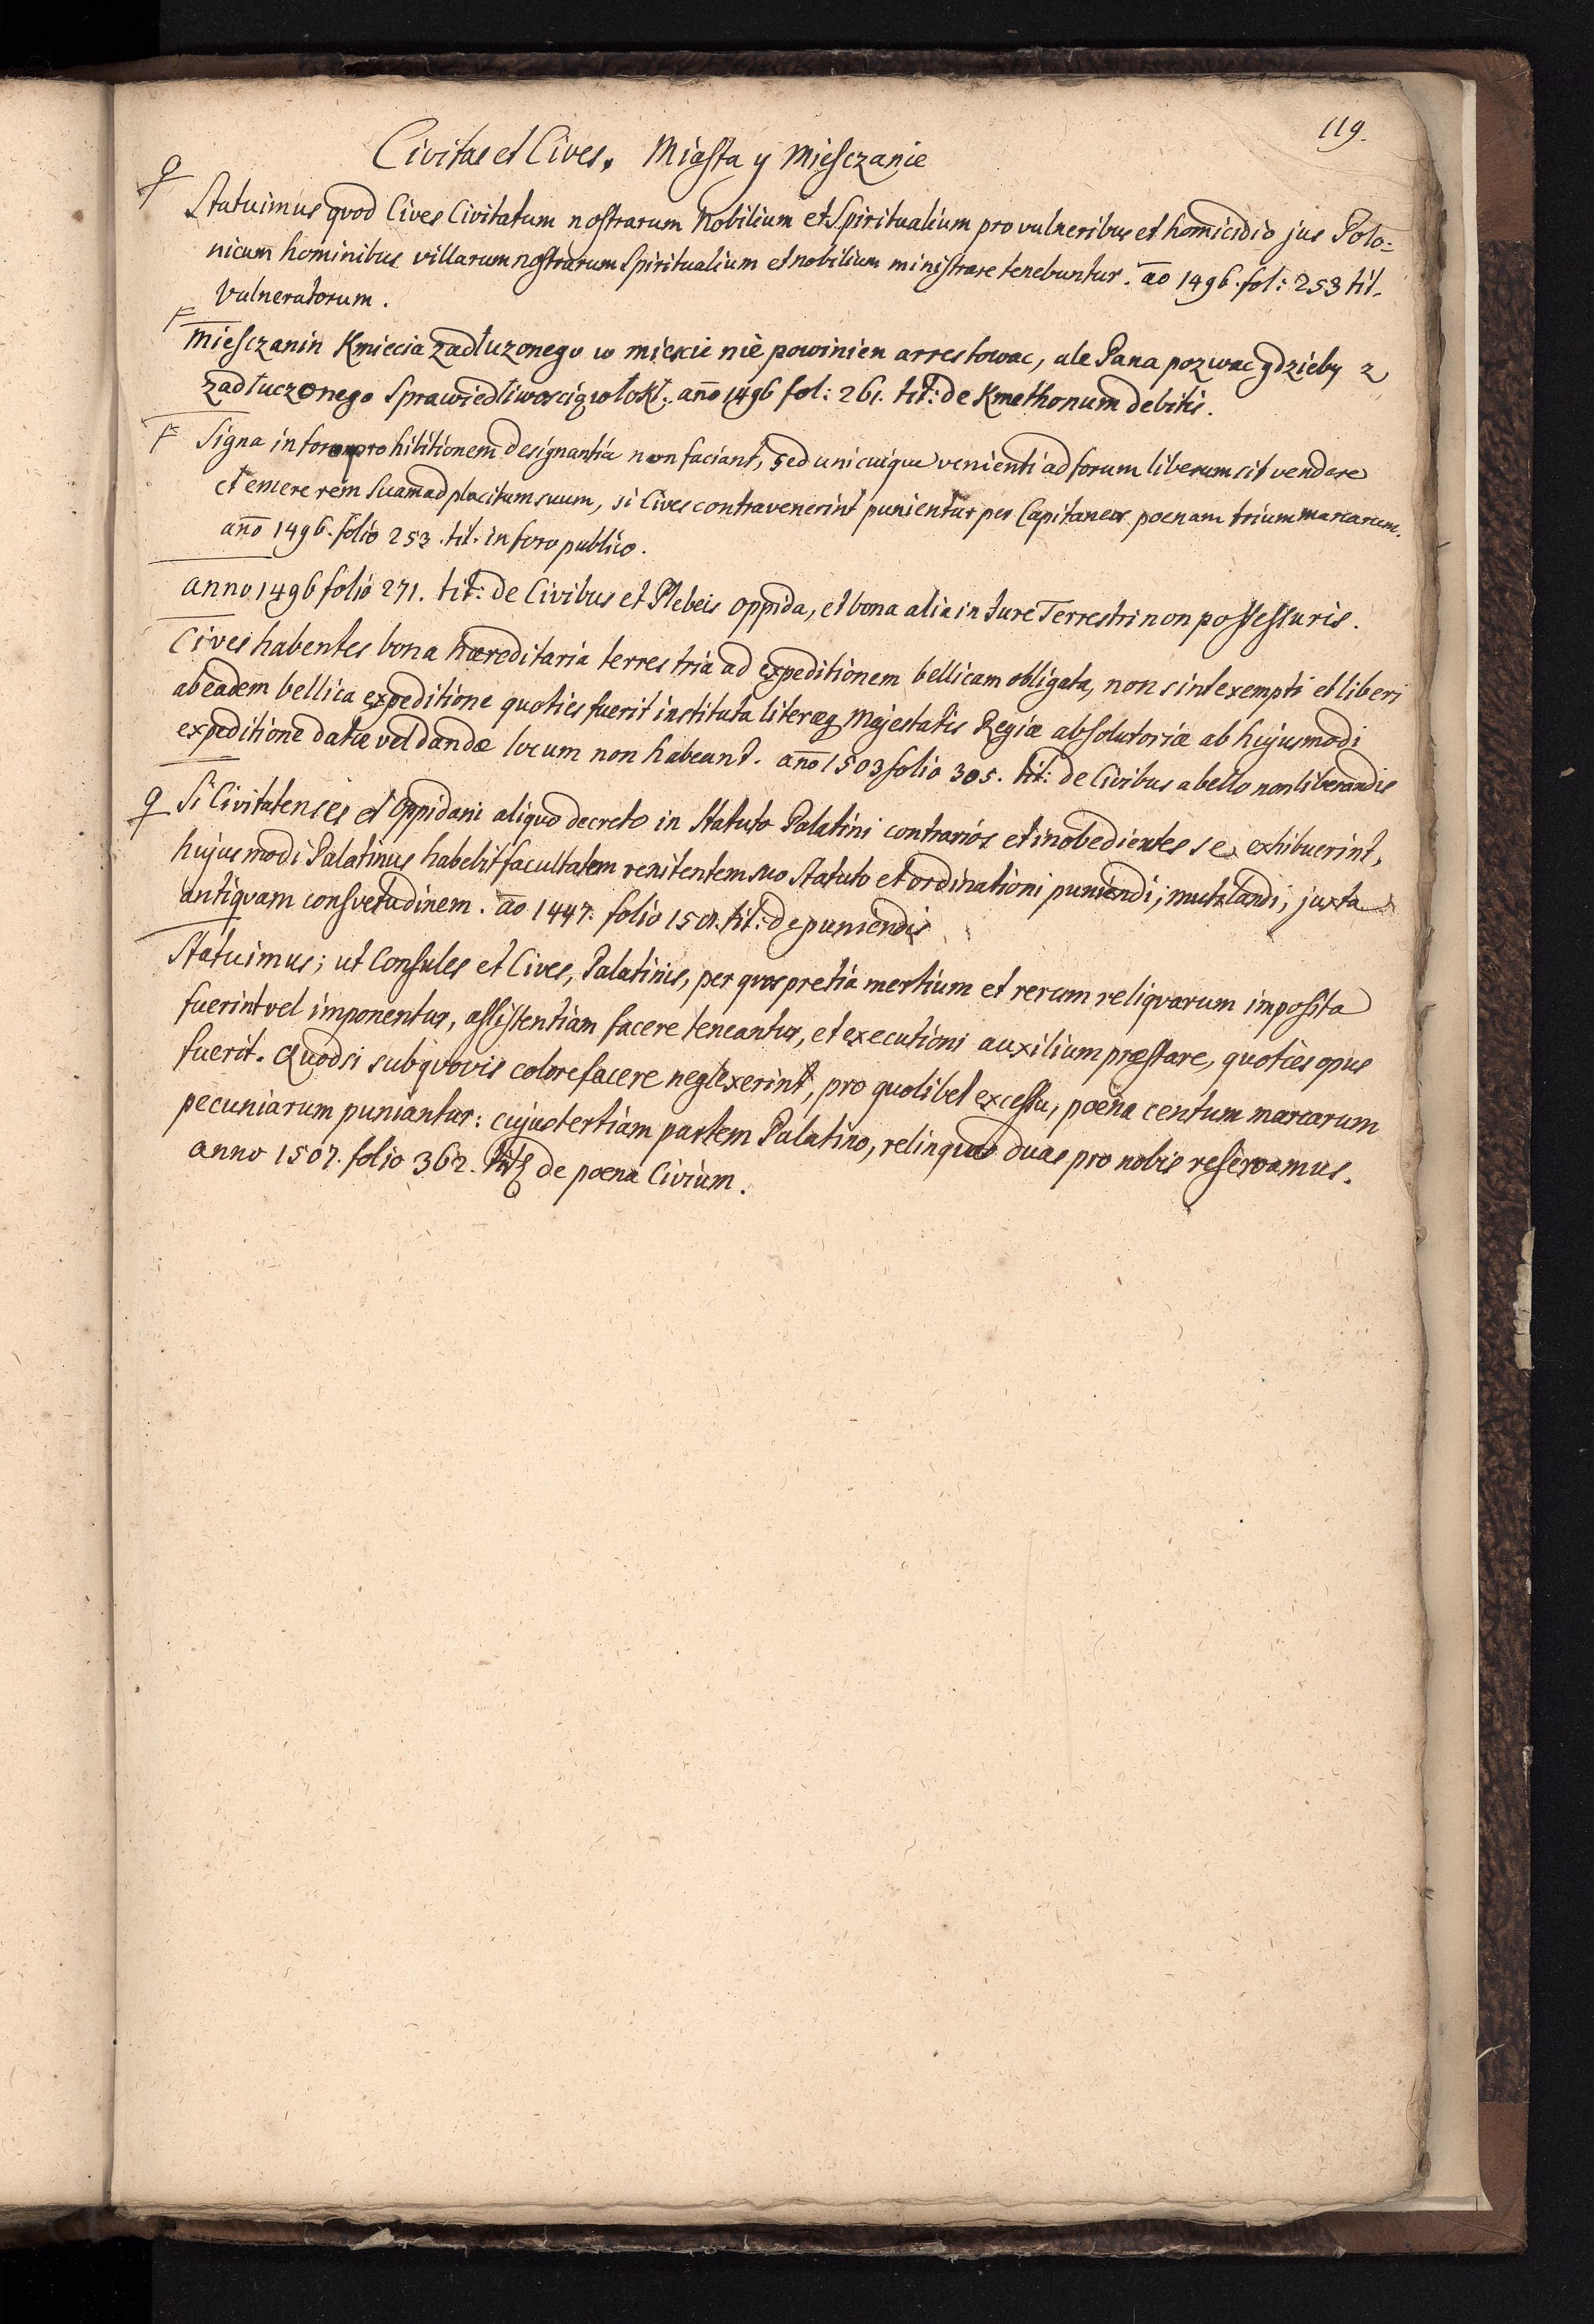 119.
Civitas et Cives. Miasta y Miesczanie
Statuimus qvod Cives Civitatum nostrarum Nobilium et Spiritualium pro vulneribus et homicidio jus Polo=
nicum hominibus villarum nostrarum Spiritualium et nobilium ministrare tenebuntur. ao 1496. fol: 253 tit.
Vulneratorum.
Miesczanin Kmiecia zadłuzonego w miescie nie powinien arrestowac, ale Pana pozwac gdzieby z
zadłuczonego Sprawiedliwoscią wlokł. ano 1496 fol: 261. tit: de Kmethonum debitis.
Signa in foro prohibitionem designantia non faciant, sed unicuique venienti ad forum liberum sit vendere
et emere rem suam ad placitum suum, si Cives contravenerint punientur per Capitaneos poenam trium marcarum.
ano 1496. folio 253. tit. in foro publico.
anno 1496 folio 271. tit: de Civibus et Plebeis oppida, et bona alia in Jure Terrestri non possessuris.
Cives habentes bona hæreditaria terrestria ad expeditionem bellicam obligata, non sint exempti et liberi
ab eadem bellica expeditione quoties fuerit instituta literæq Majestatis Regiæ absolutoriæ ab hujusmodi
expeditione datæ vel dandæ locum non habeant. ano 1503 folio 305. tit: de Civibus a bello non liberandis
Si Civitatenses et Oppidani aliquo decreto in Statuto Palatini contrarios et inobedientes se exhibuerint,
hujusmodi Palatinus habebit facultatem renitentem suo Statuto et ordinationi puniendi; mulctandi; juxta
antiqvam consvetudinem. ao 1447. folio tit: de puniendis
Statuimus; ut Consules et Cives, Palatinis, per qvos pretia mertium et rerum reliqvarum imposita
fuerint vel imponentur, assistentiam facere teneantur, et executioni auxilium præstare, quoties opus
fuerit. Quodsi sub qvovis colore facere neglexerint, pro quolibet excessu, poena centum marcarum
pecuniarum puniantur: cujus tertiam partem Palatino, reliquas duas pro nobis reservamus.
anno 1507. folio 362. de poena Civium.